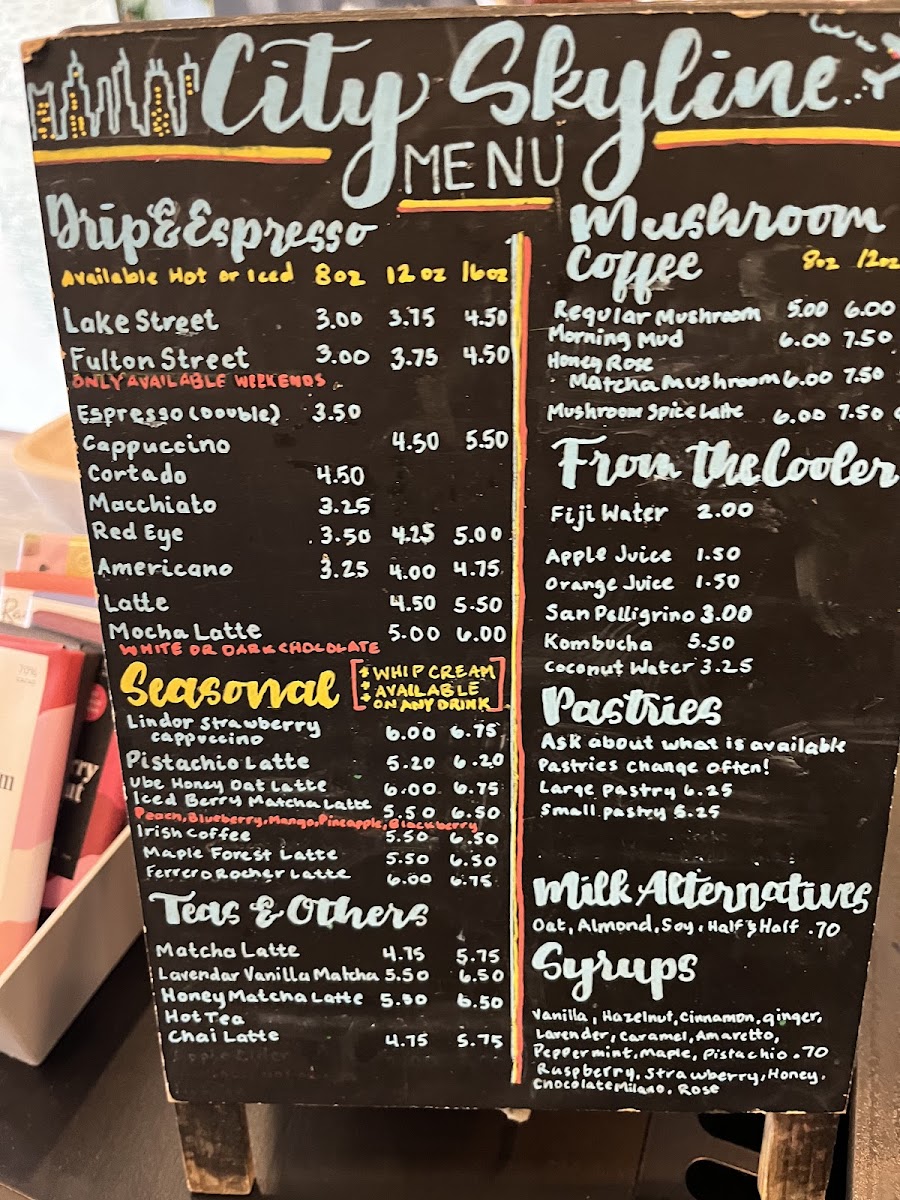 City Skyline
MENU
Drip & Espresso
Available Hot or Iced 8oz 12oz 16oz
Lake Street 3.00 3.75 4.50
Fulton Street 3.00 3.75 4.50
ONLY AVAILABLE WEEKENDS
Espresso (Double) 3.50
Cappuccino 4.50 5.50
Cortado 4.50
Macchiato 3.25
Red Eye 3.50 4.25 5.00
Americano 3.25 4.00 4.75
Latte 4.50 5.50
Mocha Latte 5.00 6.00
WHITE OR DARK CHOCOLATE
Seasonal
* WHIP CREAM
* AVAILABLE
* ON ANY DRINK
Lindor Strawberry
Cappuccino 6.00 6.75
Pistachio Latte 5.20 6.20
Ube Honey Oat Latte 6.00 6.75
Iced Berry Matcha Latte 5.50 6.50
Peach, Blueberry, Mango, Pineapple, Blackberry
Irish Coffee 5.50 6.50
Maple Forest Latte 5.50 6.50
Ferrero Rocher Latte 6.00 6.75
Teas & Others
Matcha Latte 4.75 5.75
Lavendar Vanilla Matcha 5.50 6.50
Honey Matcha Latte 5.50 6.50
Hot Tea
Chai Latte 4.75 5.75
Mushroom
Coffee 8oz 12oz
Regular Mushroom 5.00 6.00
Morning Mud 6.00 7.50
Honey Rose
Matcha Mushroom 6.00 7.50
Mushroom Spice Latte 6.00 7.50
From the Cooler
Fiji Water 2.00
Apple Juice 1.50
Orange Juice 1.50
San Pelligrino 3.00
Kombucha 5.50
Coconut Water 3.25
Pastries
Ask about what is available
Pastries change often!
Large pastry 6.25
Small pastry 5.25
Milk Alternatives
Oat, Almond, Soy, Half & Half .70
Syrups
Vanilla, Hazelnut, Cinnamon, ginger,
Lavender, Caramel, Amaretto,
Peppermint, Maple, Pistachio .70
Raspberry, Strawberry, Honey,
Chocolate Milano, Rose
70%